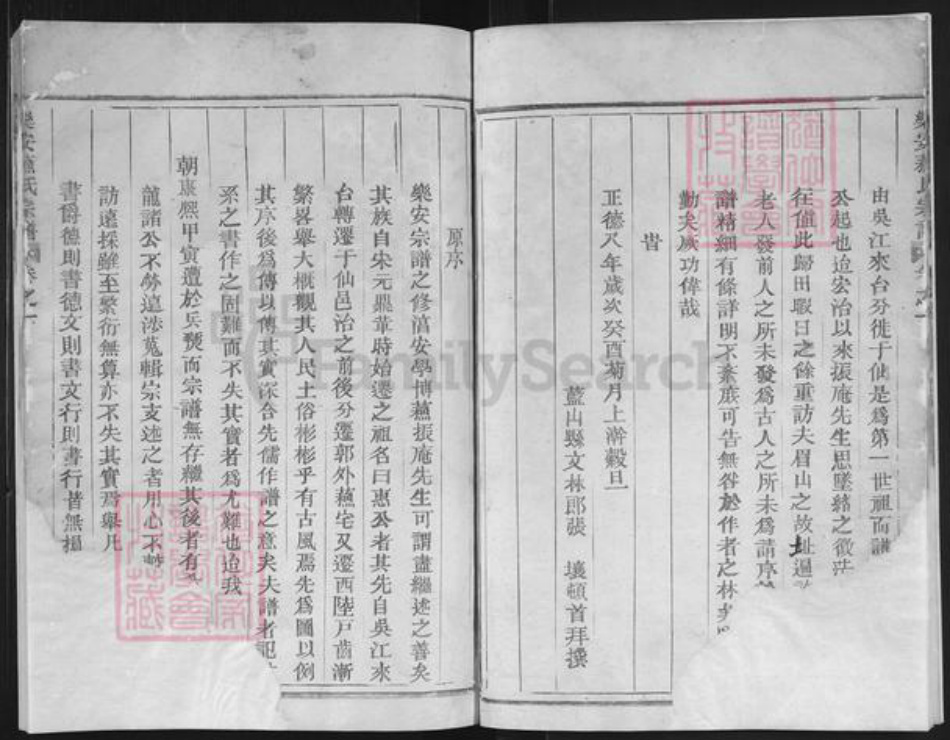 由吳江來台分徙于仙是為第一世祖而譜
公起也迨宏治以來振庵先生思墜緒之微茫
在值此歸田暇日之餘重訪夫眉山之故址遍
老人發前人之所未發為古人之所未為請序
譜精細有條詳明不紊庶可告無咎於作者之林矣
勤矣厥功偉哉
旹
正德八年歲次癸酉菊月上澣穀旦
藍山縣文林郎張 壤頓首拜撰
原序
樂安宗譜之修富安學博蘓振庵先生可謂盡繼述之善矣
其族自宋元鼎革時始遷之祖名曰惠公者其先自吳江來
台轉遷于仙邑治之前後分遷郭外蘓宅又遷西陸戸齒漸
繁畧舉大概觀其人民土俗彬彬乎有古風焉先為圖以例
其序後為傳以傳其實深合先儒作譜之意矣夫譜者記
系之書作之固難而不失其實者為尤難也迨我
朝康熙甲寅遭於兵燹而宗譜無存糴其後者有
龍諸公不勞遠涉蒐輯宗支述之者用心不
訪遠採雖至繁衍無算亦不失其實焉舉凡
書爵德則書德文則書文行則書行皆無損
FamilySearch